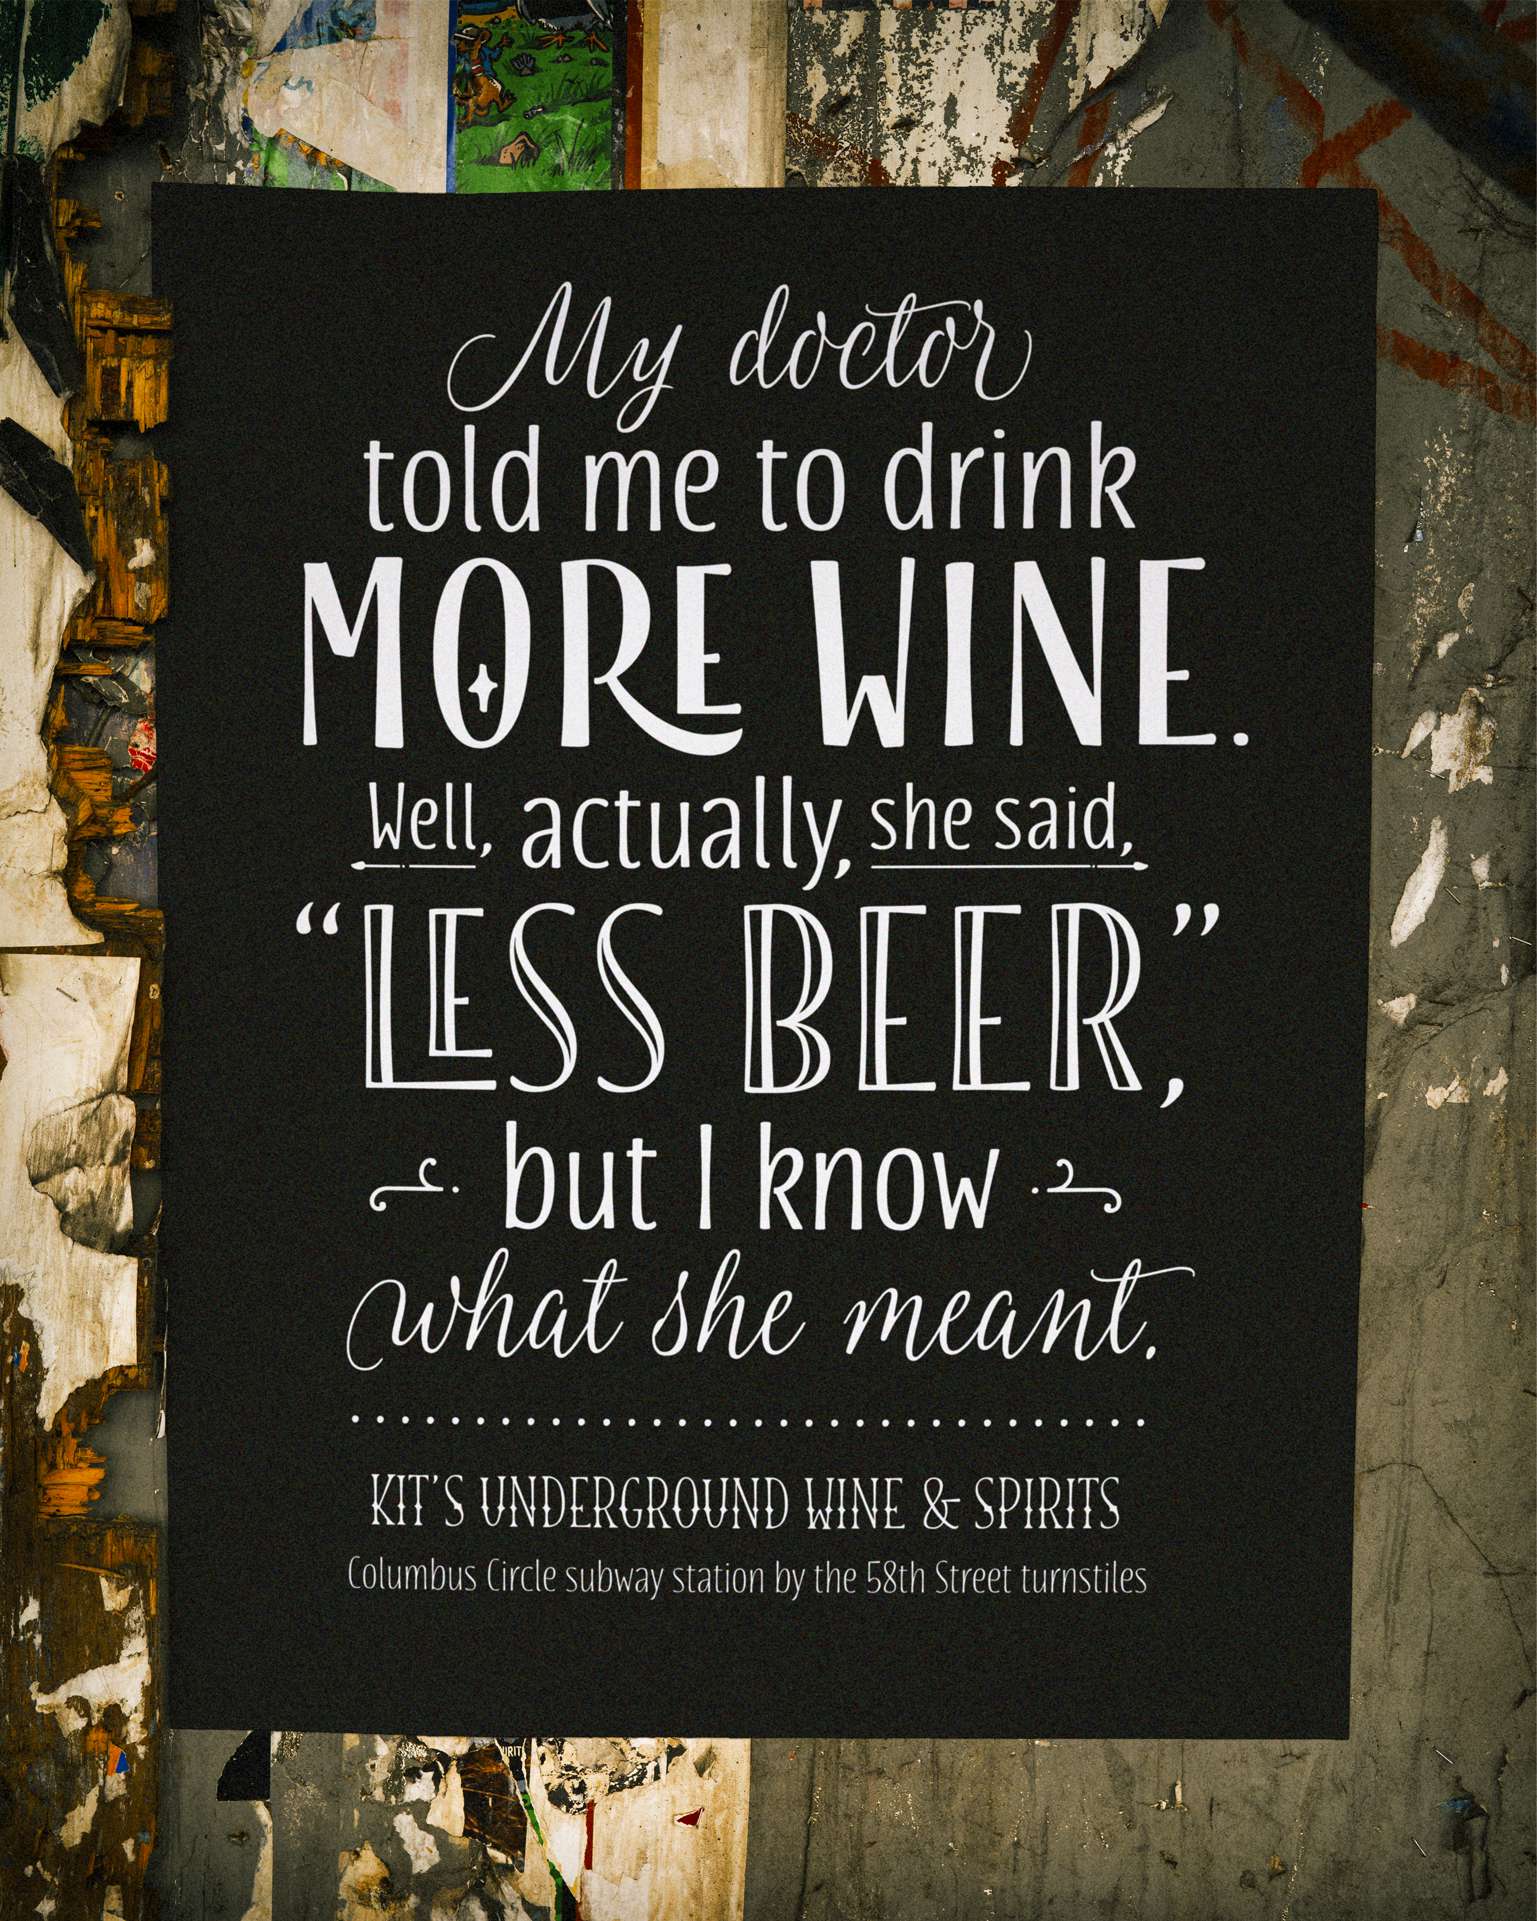 My doctor
told me to drink
MORE WINE.
Well, actually, she said,
“LESS BEER,”
but I know
what she meant.
KIT'S UNDERGROUND WINE & SPIRITS
Columbus Circle subway station by the 58th Street turnstiles